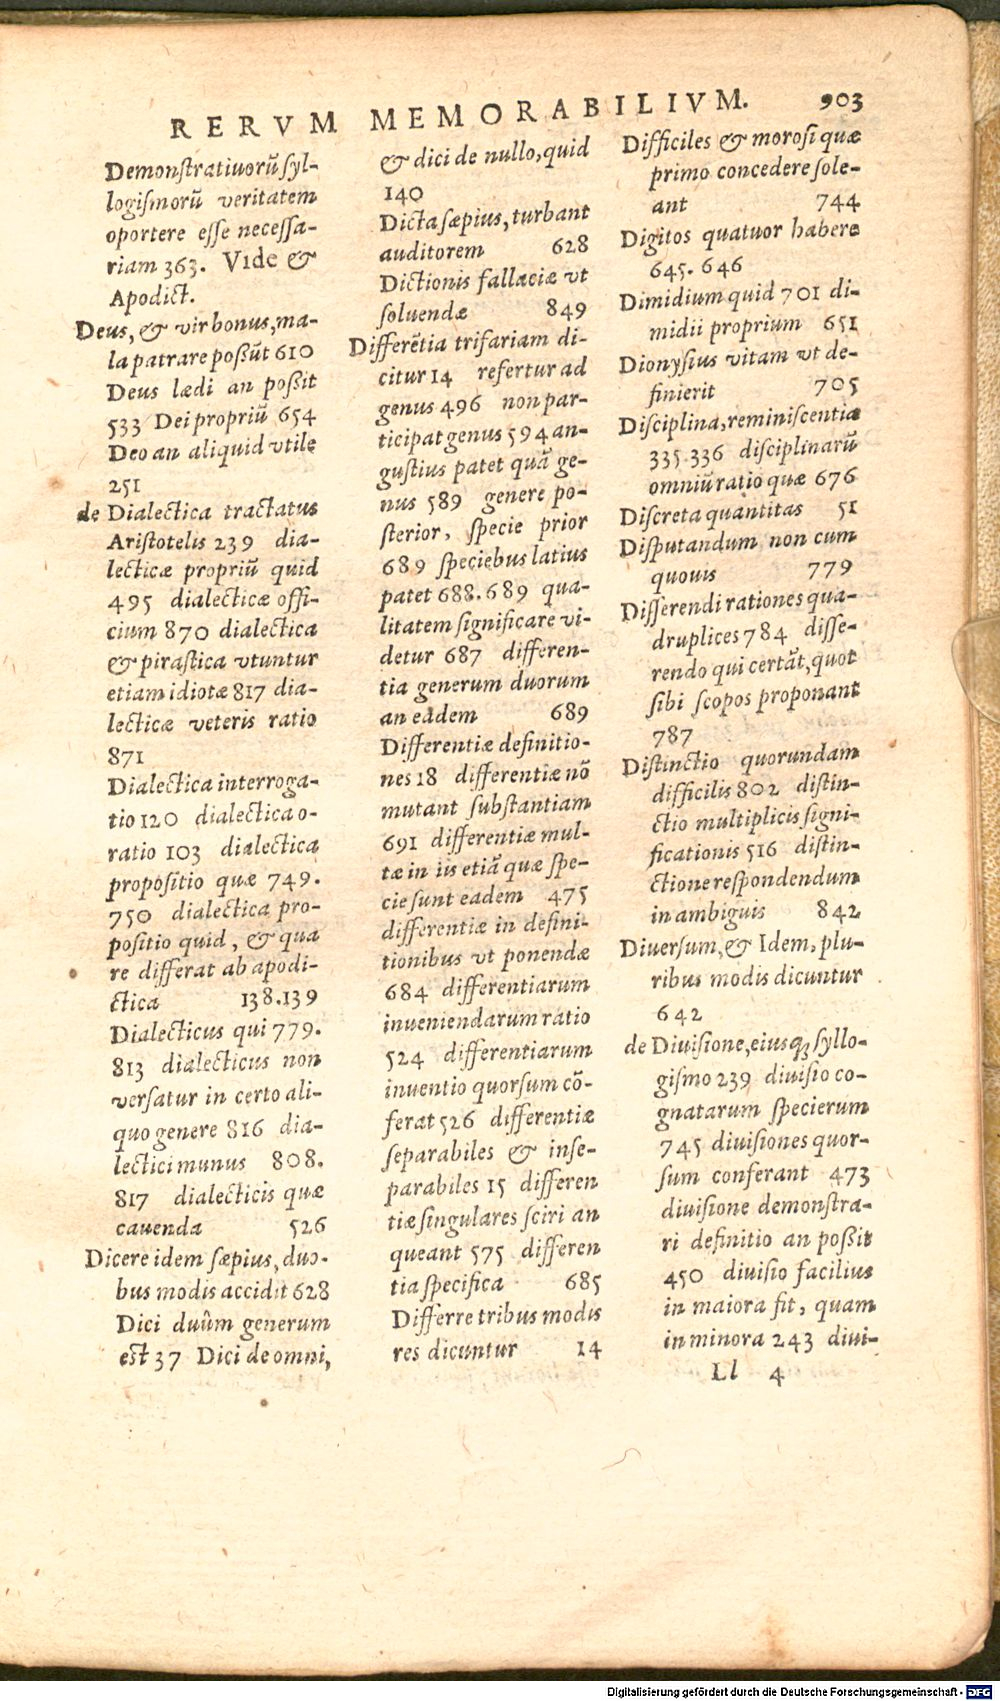 RERVM MEMORABILIVM. 903
Demonſtratiuorū ſyl-
logiſmorū veritatem
oportere eſſe neceſſa-
riam 363. Vide &
Apodict.
Deus, & vir bonus, ma-
la patrare poßūt 610
Deus lædi an poßit
533 Dei propriū 654
Deo an aliquid vtile
251
de Dialectica tractatus
Ariſtotelis 239 dia-
lecticæ propriū quid
495 dialecticæ offi-
cium 870 dialectica
& piraſtica vtuntur
etiam idiotæ 817 dia-
lecticæ veteris ratio
871
Dialectica interroga-
tio 120 dialectica o-
ratio 103 dialectica
propoſitio quæ 749.
750 dialectica pro-
poſitio quid, & qua
re differat ab apodi-
ctica 138.139
Dialecticus qui 779.
813 dialecticus non
verſatur in certo ali-
quo genere 816 dia-
lectici munus 808.
817 dialecticis quæ
cauenda 526
Dicere idem ſæpius, duo-
bus modis accidit 628
Dici duûm generum
eſt 37 Dici de omni,
& dici de nullo, quid
140
Dicta ſæpius, turbant
auditorem 628
Dictionis fallaciæ vt
ſoluendæ 849
Differētia trifariam di-
citur 14 refertur ad
genus 496 non par-
ticipat genus 594 an-
guſtius patet quā ge-
nus 589 genere po-
ſterior, ſpecie prior
689 ſpeciebus latius
patet 688.689 qua-
litatem ſignificare vi-
detur 687 differen-
tia generum duorum
an eadem 689
Differentiæ definitio-
nes 18 differentiæ nō
mutant ſubſtantiam
691 differentiæ mul-
tæ in iis etiā quæ ſpe-
cie ſunt eadem 475
differentiæ in defini-
tionibus vt ponendæ
684 differentiarum
inueniendarum ratio
524 differentiarum
inuentio quorſum cō-
ferat 526 differentiæ
ſeparabiles & inſe-
parabiles 15 differen
tiæ ſingulares ſciri an
queant 575 differen
tia ſpecifica 685
Differre tribus modis
res dicuntur 14
Difficiles & moroſi quæ
primo concedere ſole-
ant 744
Digitos quatuor habere
645. 646
Dimidium quid 701 di-
midii proprium 651
Dionyſius vitam vt de-
finierit 705
Diſciplina, reminiſcentia
335.336 diſciplinarū
omniū ratio quæ 676
Diſcreta quantitas 51
Diſputandum non cum
quouis 779
Diſſerendi rationes qua-
druplices 784 diſſe-
rendo qui certāt, quot
ſibi ſcopos proponant
787
Diſtinctio quorundam
difficilis 802 diſtin-
ctio multiplicis ſigni-
ficationis 516 diſtin-
ctione reſpondendum
in ambiguis 842
Diuerſum, & Idem, plu-
ribus modis dicuntur
642
de Diuiſione, eiusq́ſyllo-
giſmo 239 diuiſio co-
gnatarum ſpecierum
745 diuiſiones quor-
ſum conferant 473
diuiſione demonſtra-
ri definitio an poßit
450 diuiſio facilius
in maiora fit, quam
in minora 243 diui-
Ll 4
Digitalisierung gefördert durch die Deutsche Forschungsgemeinschaft - DFG